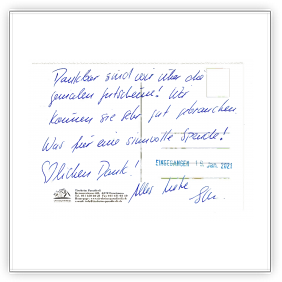 Dankbar sind wir über die
genialen Gutscheine! Wir
können sie sehr gut gebrauchen
Was für eine sinnvolle Spende!
♡lichen Dank!
EINGEGANGEN 1 JAN. 2021
Alles Liebe